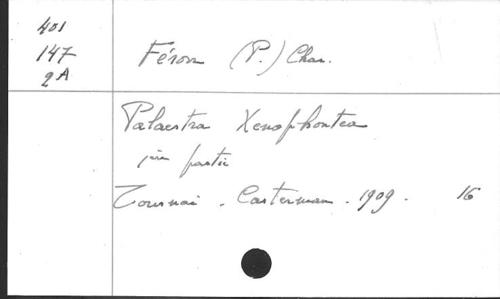 401
147
2A
Féron (P.) Chan.
Palaestra Xenophontea
1ère partie
Tournai. Casterman. 1909. 16